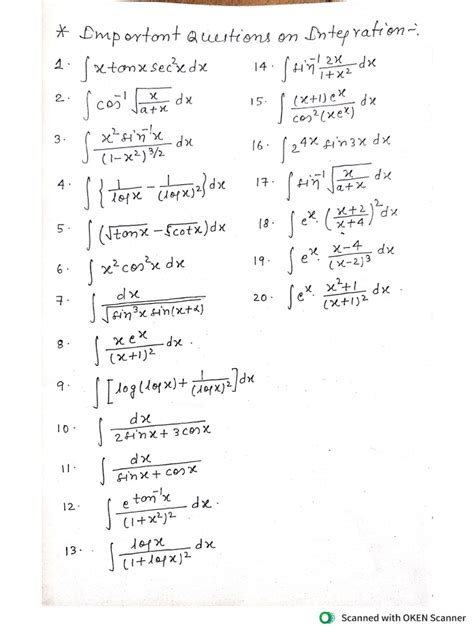 * Important Questions on Integration:-
1. ∫ x tanx sec²x dx
2. ∫ cos⁻¹ √(x/(a+x)) dx
3. ∫ x² sin⁻¹x / (1-x²)^(3/2) dx
4. ∫ { 1/logx - 1/(logx)² } dx
5. ∫ (√tanx - √cotx) dx
6. ∫ x² cos²x dx
7. ∫ dx / √(sin³x sin(x+α))
8. ∫ x eˣ / (x+1)² dx
9. ∫ [ log(logx) + 1/(logx)² ] dx
10. ∫ dx / (2sinx + 3cosx)
11. ∫ dx / (sinx + cosx)
12. ∫ e^(tan⁻¹x) / (1+x²)² dx.
13. ∫ logx / (1+logx)² dx
14. ∫ sin⁻¹ 2x/(1+x²) dx
15. ∫ (x+1)eˣ / cos²(xeˣ) dx
16. ∫ 2^(4x) sin3x dx
17. ∫ sin⁻¹ √(x/(a+x)) dx
18. ∫ eˣ. ((x+2)/(x+4))² dx
19. ∫ eˣ. (x-4)/(x-2)³ dx
20. ∫ eˣ. (x²+1)/(x+1)² dx.
Scanned with OKEN Scanner